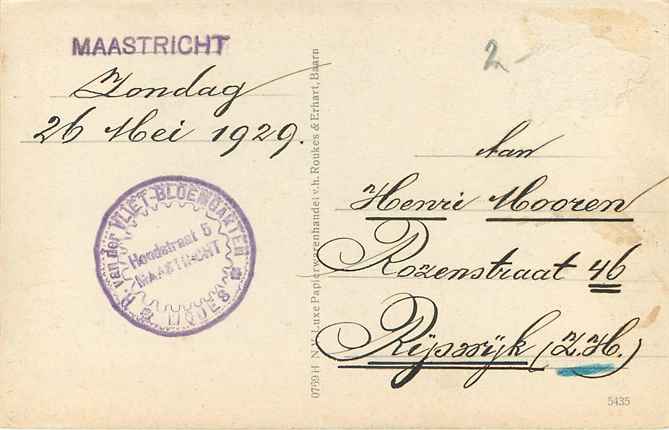 MAASTRICHT
Zondag
26 Mei 1929.
VLIET-BLOEMGARTEN
R. van der
MODES
Hondstraat 5
MAASTRICHT
0769H N.V. Luxe Papierwarenhandel v.h. Roukes & Erhart, Baarn
2-
Aan
Henri Mooren
Rozenstraat 46
Rijswijk (Z.H.)
5435